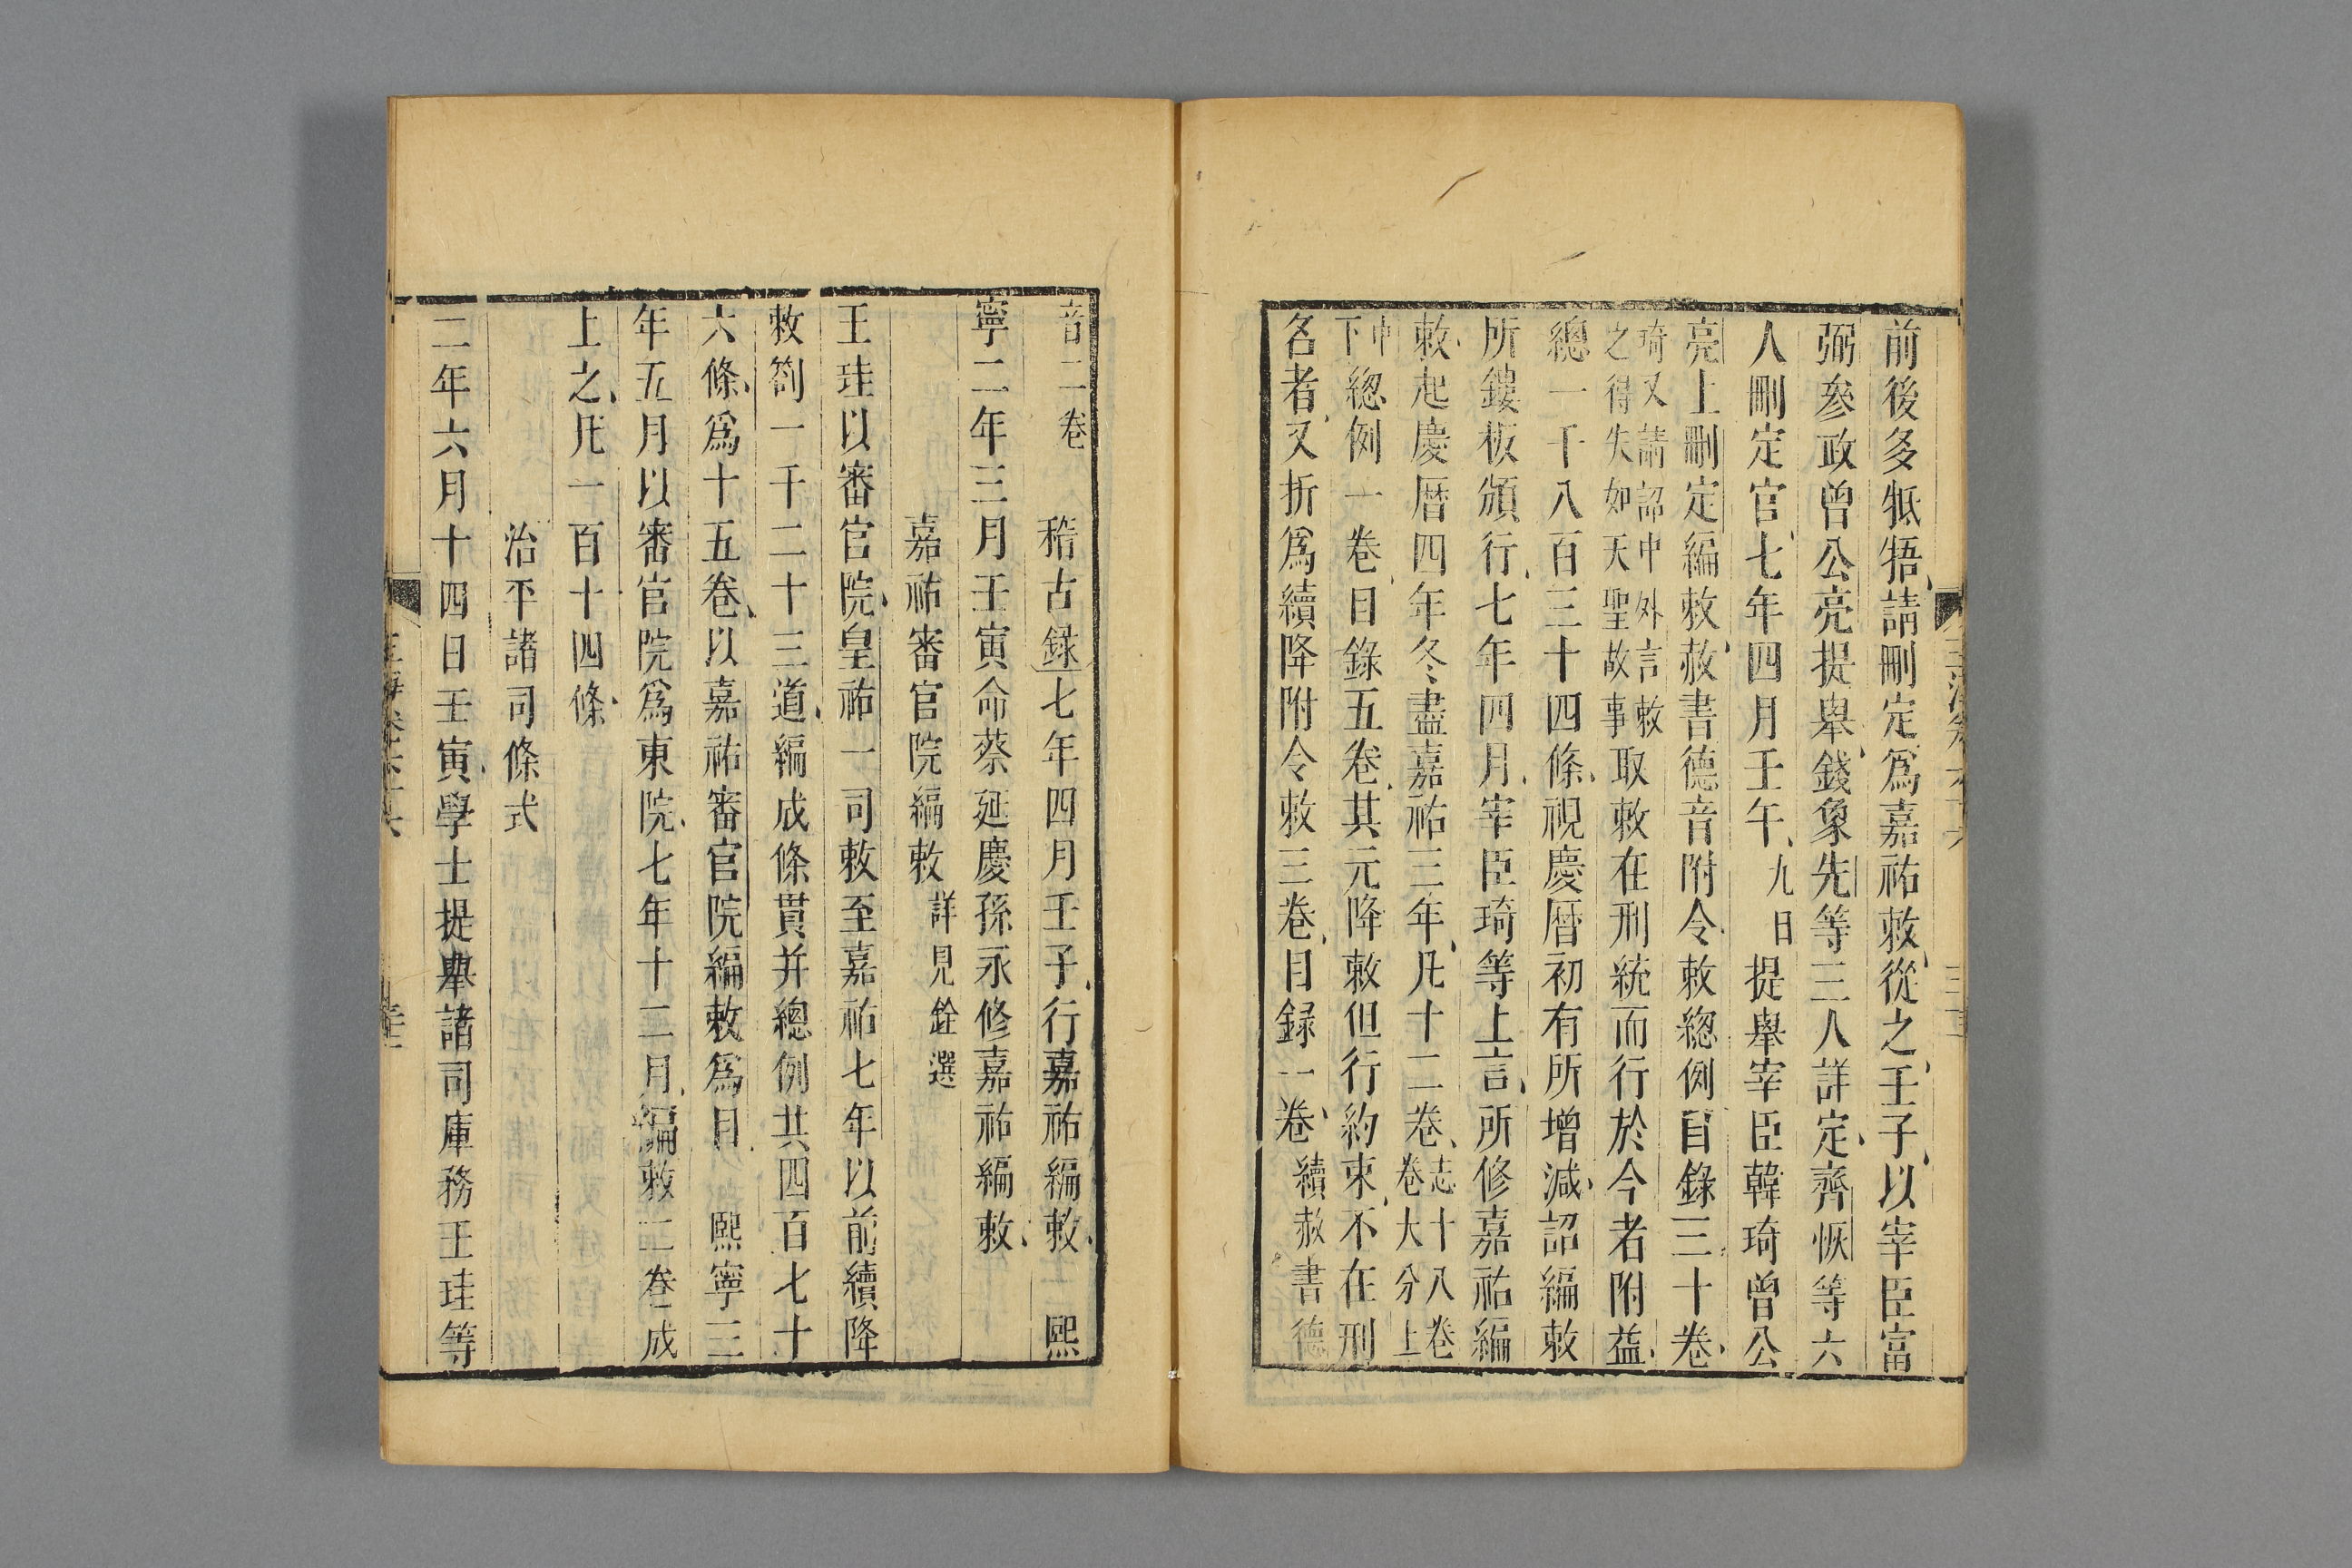 前後多牴牾請刪定爲嘉祐敕從之壬子以宰臣富
弼參政曾公亮提舉錢象先等三人詳定齊恢等六
人刪定官七年四月壬午九日提舉宰臣韓琦曾公
亮上刪定編敕赦書德音附令敕總例目錄三十卷
琦又請詔中外言敕
之得失如天聖故事
取敕在刑統而行於今者附益
總一千八百三十四條視慶曆初有所增減詔編敕
所鏤板頒行七年四月宰臣琦等上言所修嘉祐編
敕起慶曆四年冬盡嘉祐三年凡十二卷
志十八卷
卷大分上
中
下
總例一卷目錄五卷其元降敕但行約束不在刑
名者又折爲續降附令敕三卷目録一卷續赦書德
音二卷 稽古録七年四月壬子行嘉祐編敕 熙
寧二年三月壬寅命蔡延慶孫永修嘉祐編敕
嘉祐審官院編敕詳見銓選
王珪以審官院皇祐一司敕至嘉祐七年以前續降
敕劄一千二十三道編成條貫并總例共四百七十
六條爲十五卷以嘉祐審官院編敕爲目 熙寧三
年五月以審官院爲東院七年十二月編敕二卷成
上之凡一百十四條
治平諸司條式
二年六月十四日壬寅學士提舉諸司庫務王珪等